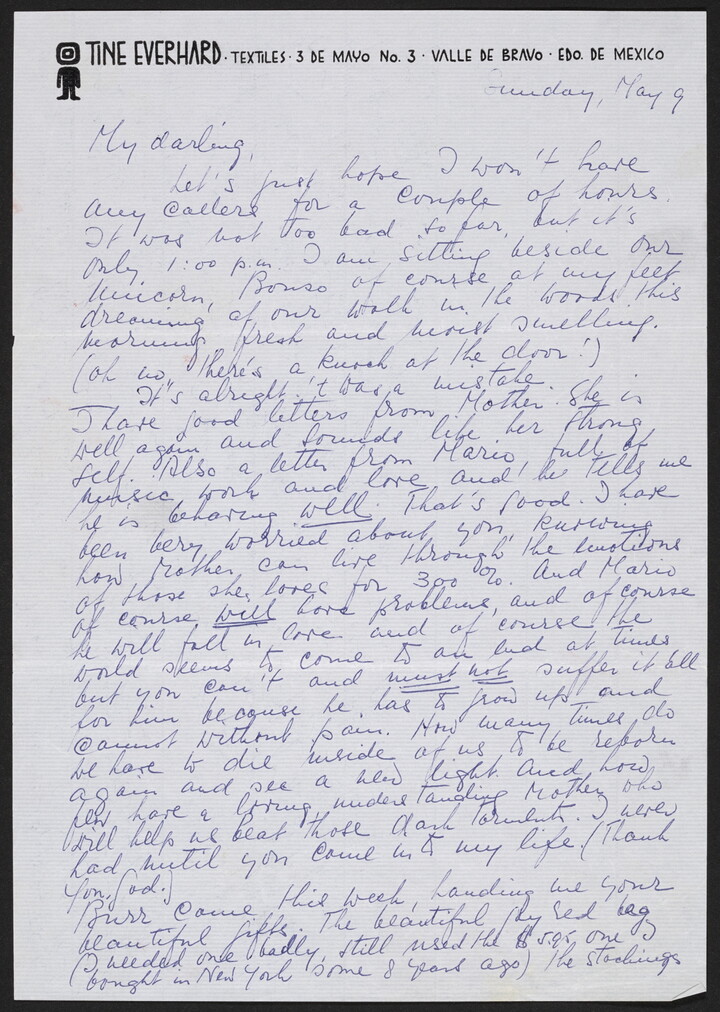 TINE EVERHARD · TEXTILES · 3 DE MAYO No. 3 · VALLE DE BRAVO · EDO. DE MEXICO
Sunday, May 9
My darling,
Let's just hope I won't have
any callers for a couple of hours.
It was not too bad so far, but it's
only 1:00 p.m. I am sitting beside our
Unicorn, Bonso of course at my feet
dreaming of our walk in the woods this
morning, fresh and moist smelling.
(oh no, there's a knock at the door!)
It's alright. 't was a mistake.
I have good letters from Mother. She is
well again and sounds like her strong
self. Also a letter from Mario full of
music, work and love and he tells me
he is behaving well. That's good. I have
been very worried about you, knowing
how Mother can live through the emotions
of those she loves for 300 %. And Mario
of course will have problems, and of course
he will fall in love and of course the
world seems to come to an end at times
but you can't and must not suffer it all
for him because he has to grow up and
cannot without pain. How many times do
we have to die inside of us to be reborn
again and see a new light. And how
few have a loving understanding Mother who
will help us beat those dark torments. I never
had until you came into my life. (Thank
you, God.)
Burr came this week, handing me your
beautiful gifts. The beautiful red bag
(I needed one badly, still used the $ 5.95 one I
bought in New York some 8 years ago) the stockings